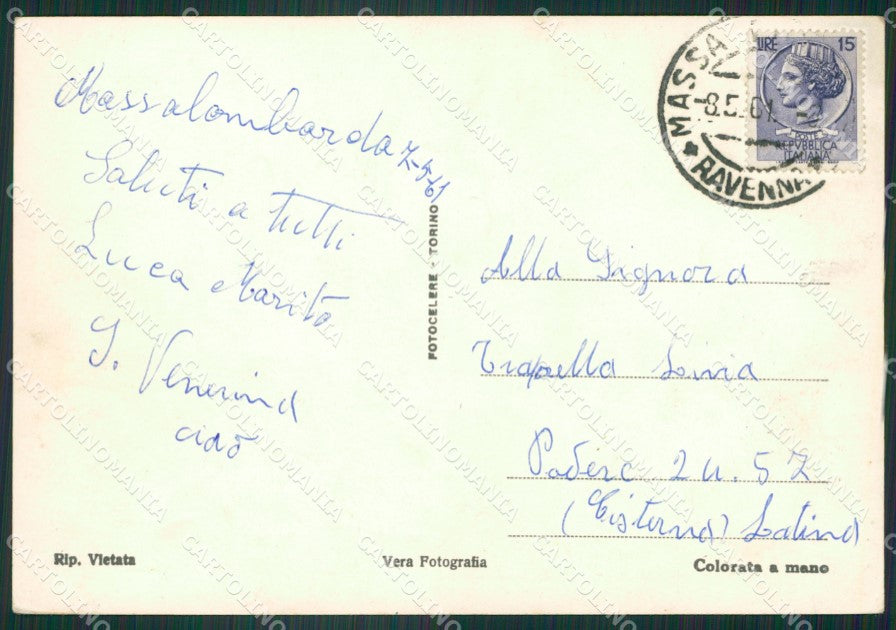 Massalombarda 7-5-61
Saluti a tutti
Luca Marito
S. Venerina
ciao
FOTOCELERE - TORINO
MASSA
8.5.61
RAVENNA
LIRE 15
POSTE
REPVBBLICA
ITALIANA
Alla Signora
Livia
Podere 2 n. 57
(Cisterna) Latina
Rip. Vietata
Vera Fotografia
Colorata a mano
CARTOLINOMANIA